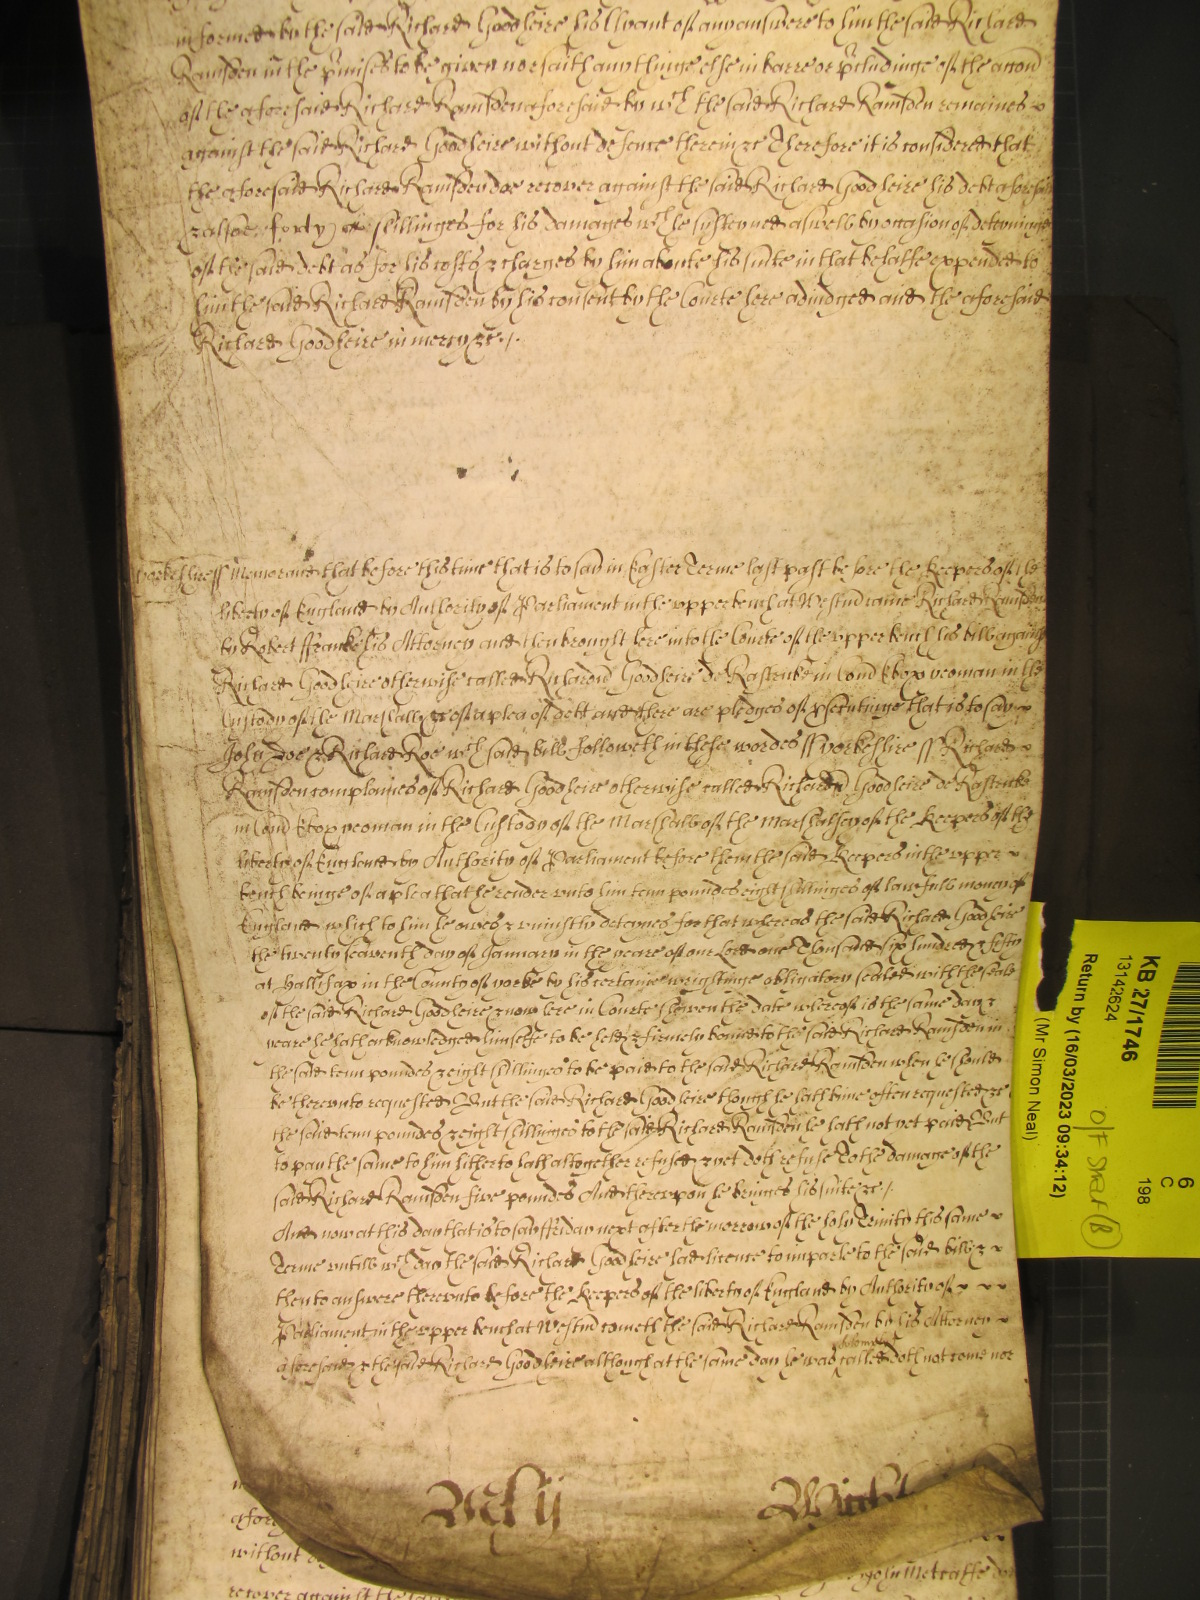 informed by the said Richard Goodheire his Clyant of any answere to him the said Richard
Ramsden in the p'mises to be given nor saith any thinge else in barre or p'cludinge of the accon
of the aforesaid Richard Ramsden aforesaid by wch the said Richard Ramsden remaines
against the said Richard Goodheire without defence therein &c Therefore it is considered that
the aforesaid Richard Ramsden doe recover against the said Richard Goodheire his debt aforesaid
& alsoe forty shillinges for his damages wch he susteyned aswell by occasion of deteyninge
of the said debt as for his costs & charges by him aboute his suite in that behalfe expended to
him the said Richard Ramsden by his consent by the Courte here adiudged and the aforesaid
Richard Goodheire in mercy &c ./.
Yorkeshire ss Memorand that before this time that is to saie in Easter Terme last past before the Keepers of the
liberty of England by Authority of Parliament in the upper bench at Westm came Richard Ramsden
by Robert ffranke his Attorney and then brought here into the Courte of the upper bench his bill against
Richard Goodheire otherwise called Richard Goodheire de Rastricke in Com Ebor yeoman in the
Custody of the Marshall &c of a plea of debt and there are pledges of p'secutinge that is to say
John Doe & Richard Roe wch said bill followeth in these wordes ss Yorkeshire ss Richard
Ramsden complaines of Richard Goodheire otherwise called Richard Goodheire de Rastricke
in Com Ebor yeoman in the Custody of the Marshall of the Marshalsey of the Keepers of the
liberty of England by Authority of Parliament before them the said Keepers in the upper
bench beinge of a plea that he render unto him tenn poundes eight shillinges of lawfull money of
England which to him he owes & uniustly detaynes for that whereas the said Richard Goodheire
the twenty seaventh day of January in the yeare of our Lord one Thousand six hundred & fifty
at Hallifax in the County of Yorke by his certaine wrightinge obligatory sealed with the seale
of the said Richard Goodheire & now here in Courte shewen the date whereof is the same day &
yeare he hath acknowledged himselfe to be held & firmely bound to the said Richard Ramsden in
the said tenn poundes & eight shillinges to be paid to the said Richard Ramsden when he should
be thereunto requested But the said Richard Goodheire though he hath bine often requested &c
the said tenn poundes & eight shillinges to the said Richard Ramsden he hath not yet paid But
to pay the same to him hitherto hath altogether refused & yet doth refuse To the damage of the
said Richard Ramsden five poundes And thereupon he bringes his suite &c ./.
And now at this day that is to say ffriday next after the morrow of the holy Trinity this same
Terme untill wch day the said Richard Goodheire had licence to imparle to the said bill &
then to answere thereunto before the Keepers of the liberty of England by Authority of
Parliament in the upper bench at Westm cometh the said Richard Ramsden by his Attorney
aforesaid & the said Richard Goodheire although at the same day he was solemnly called doth not come nor
Wight
aforesaid
without
recover against the
John Metcalfe
KB 27/1746
13142624
Return by (16/03/2023 09:34:12)
(Mr Simon Neal)
6
C
198
O/F Shelf (B)